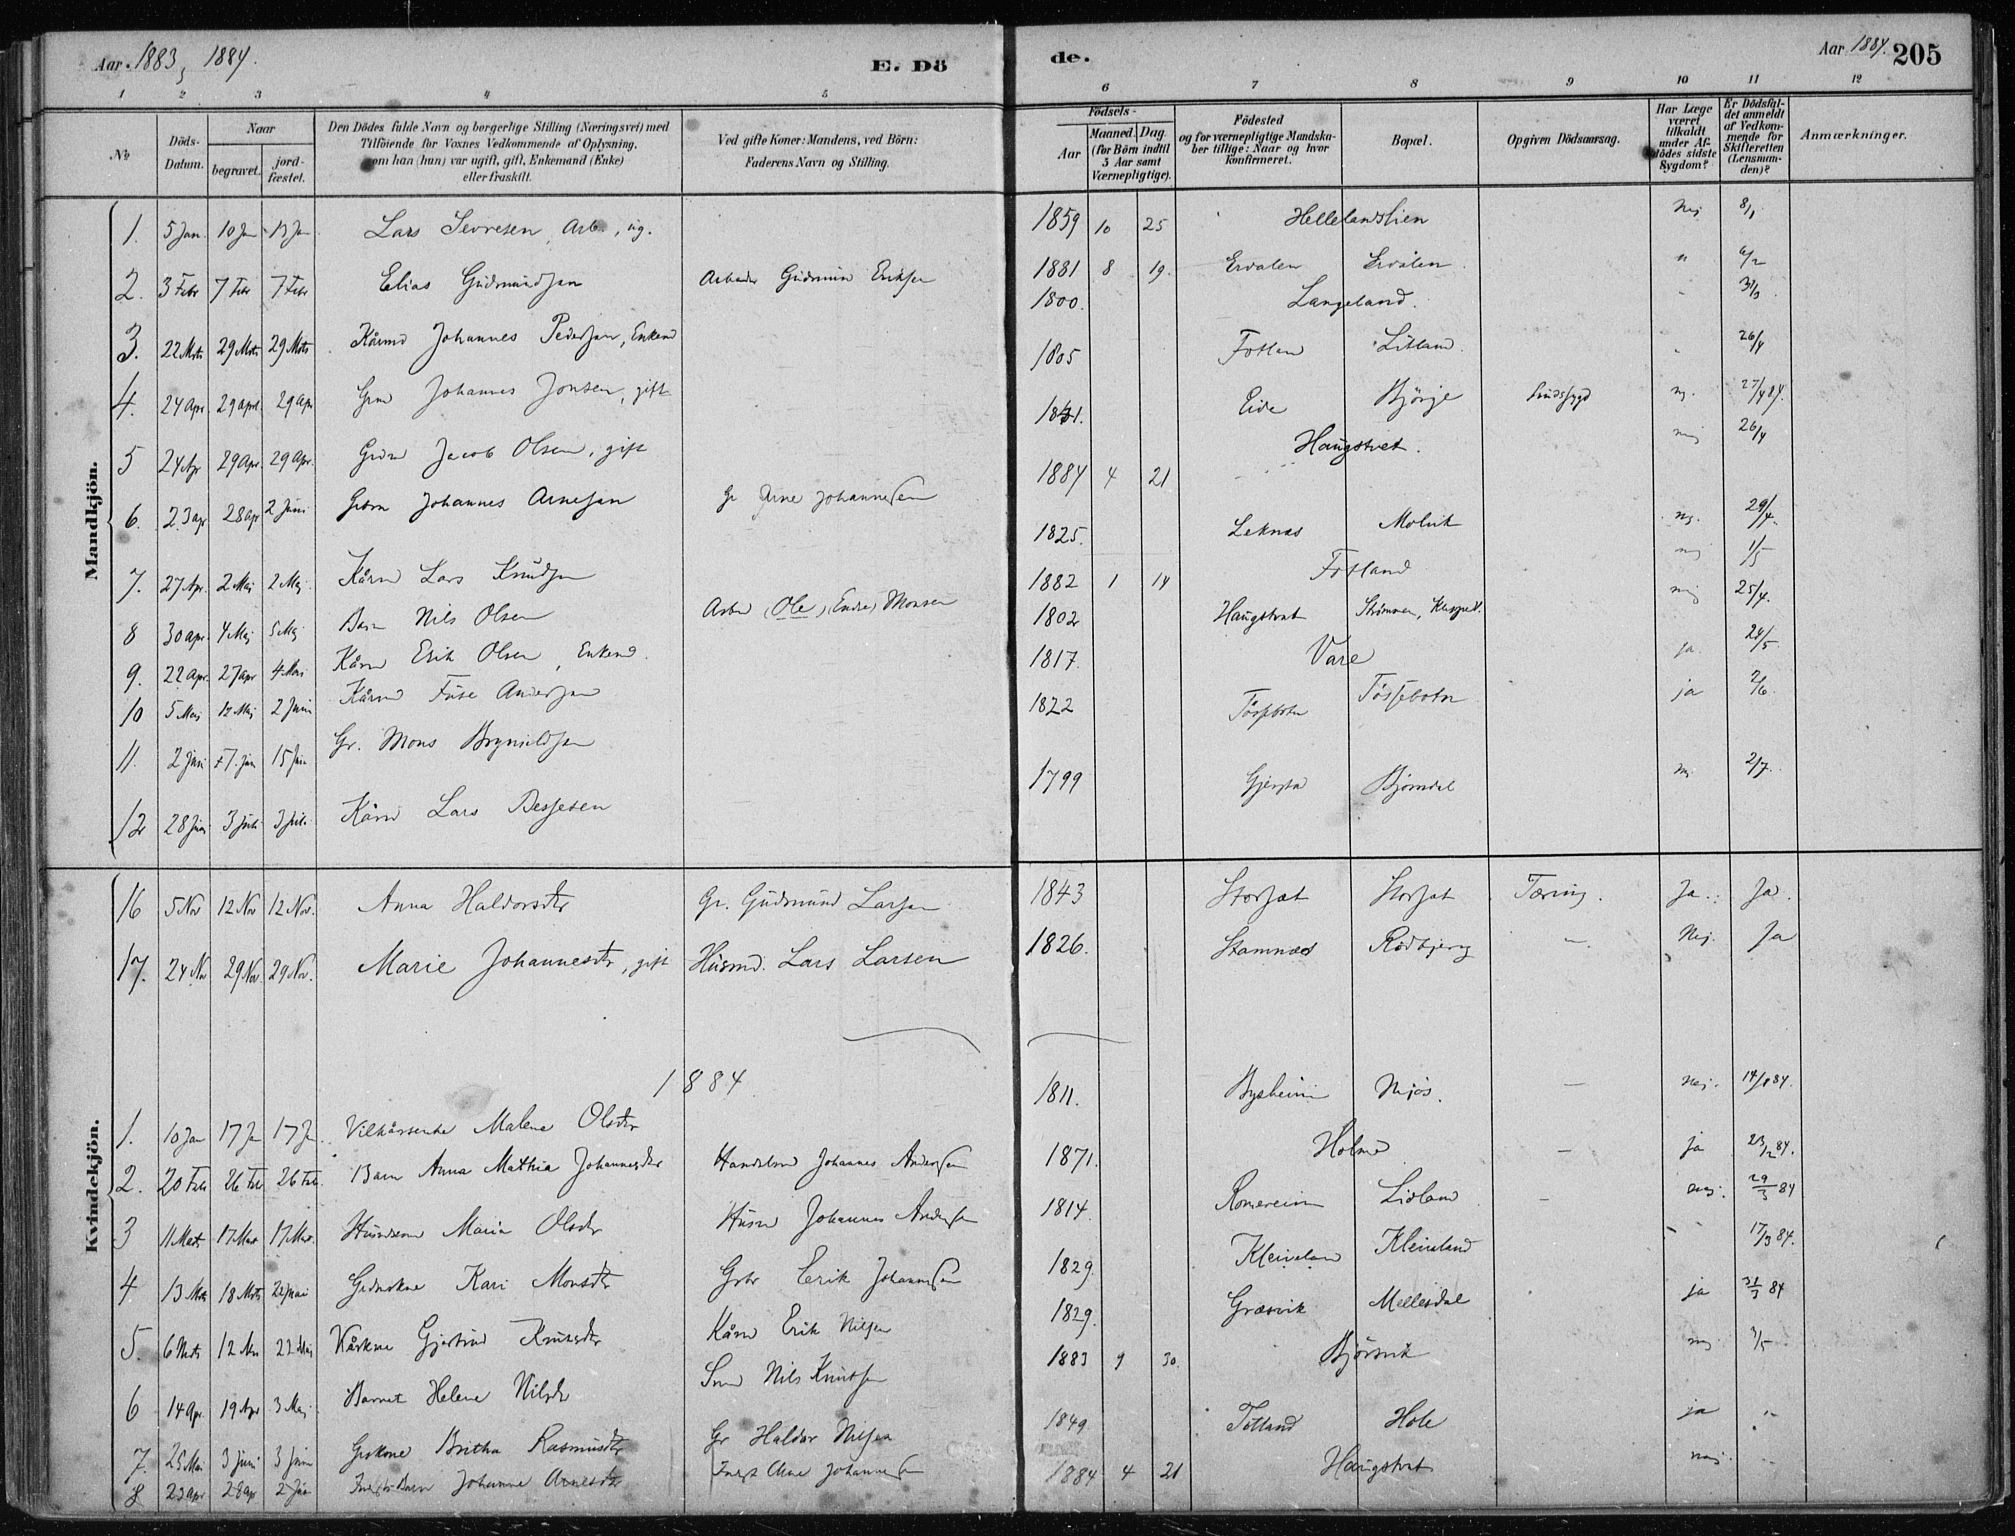 Aar 1883, 1884. E. Dö de. Aar 1884. 205
1 2 3 4 5 6 7 8 9 10 11 12
No. Döds-Datum. Naar begravet. jordfæstet. Den Dödes fulde Navn og borgerlige Stilling (Næringsvei) med Tilföiende for Voxnes Vedkommende af Oplysning, om han (hun) var ugift, gift, Enkemand (Enke) eller fraskilt. Ved gifte Koner: Mandens, ved Börn: Faderens Navn og Stilling. Födsels- Aar Maaned. Dag. (for Börn indtil 5 Aar samt Værnepligtige). Födested og for værnepligtige Mandskaber tillige: Naar og hvor konfirmeret. Bopæl. Opgiven Dödsaarsag. Har Læge været tilkaldt under Afdödes sidste Sygdom? Er Dödsfaldet anmeldt af Vedkommende for Skifteretten (Lensmanden)? Anmærkninger.
Mandkjön.
1. 5 Jan. 10 Jan 13 Jan Lars Sevresen, Arb., ug. 1859 10 25 Hellelandslien Nej 8/1
2. 3 Febr 7 Febr 7 Febr Elias Gudmundsen Arbeider Gudmund Eriksen 1881 8 19. Ervalen Ervålen " 6/2
3. 22 Mrts 29 Mrts 29 Mrts Kårmd Johannes Pedersen, Enkemd 1800. Langeland. 31/3
4. 24 Apr. 29 Aprl. 29 Apr Grm Johannes Jonsen, gift 1805 Fotlan Litland. 26/4
5 24 Apr 29 Apr. 29 Apr. Grdm Jacob Olsen, gift Eide Björge Sindssygd nej. 27/4 84.
6. 23 apr 28 apr 2 Juni Grbrn Johannes Arnesen Gr Arne Johannesen 1884 4 21 Haugstvet. nej 26/4
7. 27 Apr. 2 Mai 2 Maj Kårm Lars Knudsen 1825. Leknæs Molvik nej. 29/4.
8 30 apr. 4 Maj 5 Maj Barn Nils Olsen Arbm (Ole) (Endre) Monsen 1882 1 14 Fotland nej 1/5
9. 22 apr. 27 apr 4 Mai Kårm Erik Olsen, Enkemd. 1802 Haugstvet Strömmen, nej 25/4.
10 5 Mai 12 Maj 2 Juni Kårmd Fuse Andersen 1817. Vare ja 24/5
11. 2 Juni 7. Jun 15 Jun Gr. Mons Brynildsen 1822 Tössebotn Tössebotn ja 2/6
12 28 Jun 3 Juli 3 Juli Kårm Lars Bessesen 1799 Bjorndal nej 2/7.
Kvindekjön.
16 5 Nov 12 Nov 12 Nov. Anna Haldorsdtr Gr. Gudmund Larsen 1843 Storsæt Storsæt Tæring. Ja. Ja.
17. 24 Nov 29 Nov. 29 Nov. Marie Johannesdtr, gift Husmd. Lars Larsen 1826. Stamnæs Rödbjerg — Nej. Ja
1884
1. 10 Jan 17 Jan 17 Jan. Vilkårsenke Malene Olsdtr 1811. Bysheim Mjös. — nej. 14/1 84.
2. 20 Feb 26 Feb 26 Feb. Barn Anna Mathia Johannesdtr Handelsmd Johannes Andersen 1871. Holme — ja 23/2 84.
3 11 Marts 17 Mar 17 Mar. Maria Olsdtr Husm Johannes Andersen 1814. Romereim Lidland — nej. 29/3 84
4 13 Mrts 18 Mrts 22 mai Grdmskne Kari Monsdtr Grbr Erik Johannesen 1829. Kleiveland Kleiveland 17/3 84.
5. 6 Mrts 12 Mrs 22 Maj Kårkne Gjertrud Knutsdtr Kårm Erik Nilsen 1829. Græsvik Mellesdal ja 31/3 84
6 14 Apr. 19 Apr 3 Maj Barnet Helene Nilsdtr Nils Knutsen 1883 9 30. Björsvik nej 3/5
7. 25 Mai 3 Juni 3 Juni Grskone Britha Rasmusdtr Gr Haldor Nilsen 1849 Totland Hole ja
8 23 apr 28 apr 2 Jun Johanne Arnesdtr Arne Johannesen 1884 4 21 Haugstvet nej